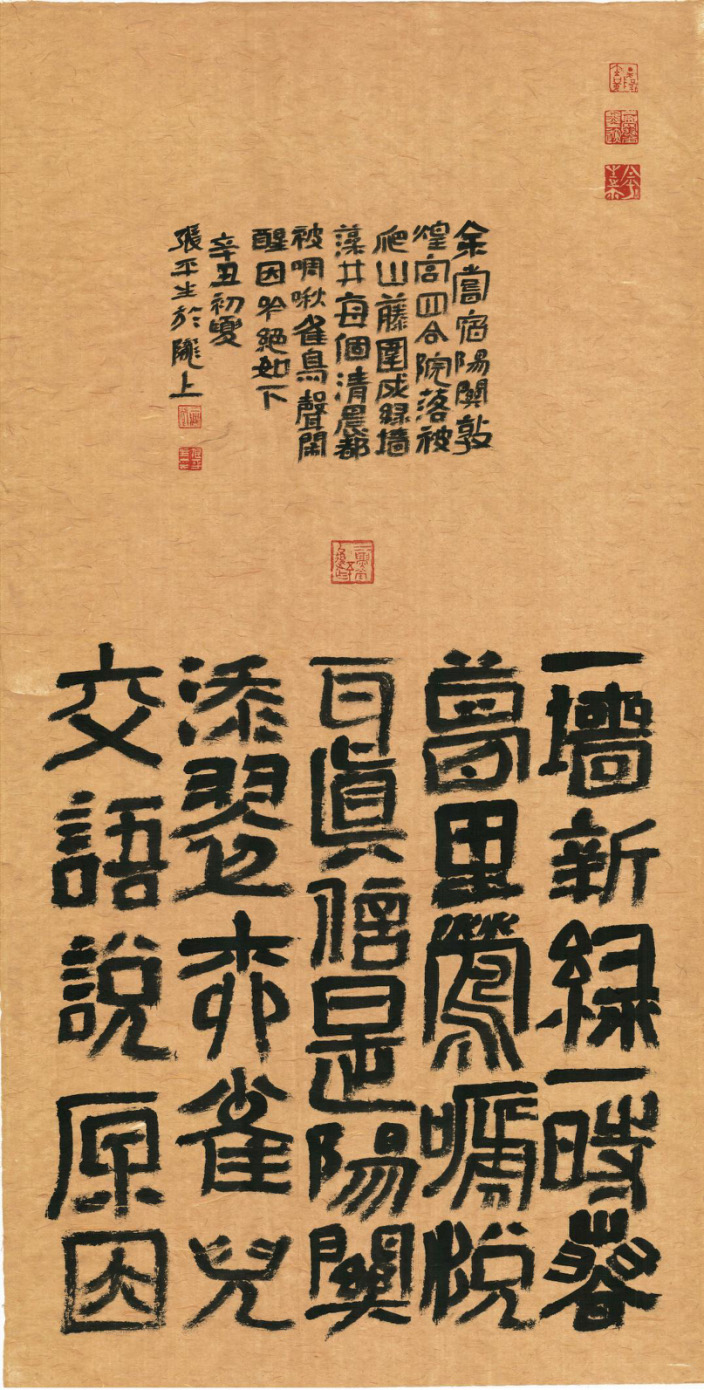 余嘗宿陽關敦
煌宮四合院落被
爬山藤圍成綠墻
藻井每個清晨都
被啁啾雀鳥聲鬧
醒因吟絕如下
辛丑初夏
張平生於隴上
一墻新綠一時春
夢里鶯嗁悅
耳真信是陽關
添翠柳雀兒
交語說原因